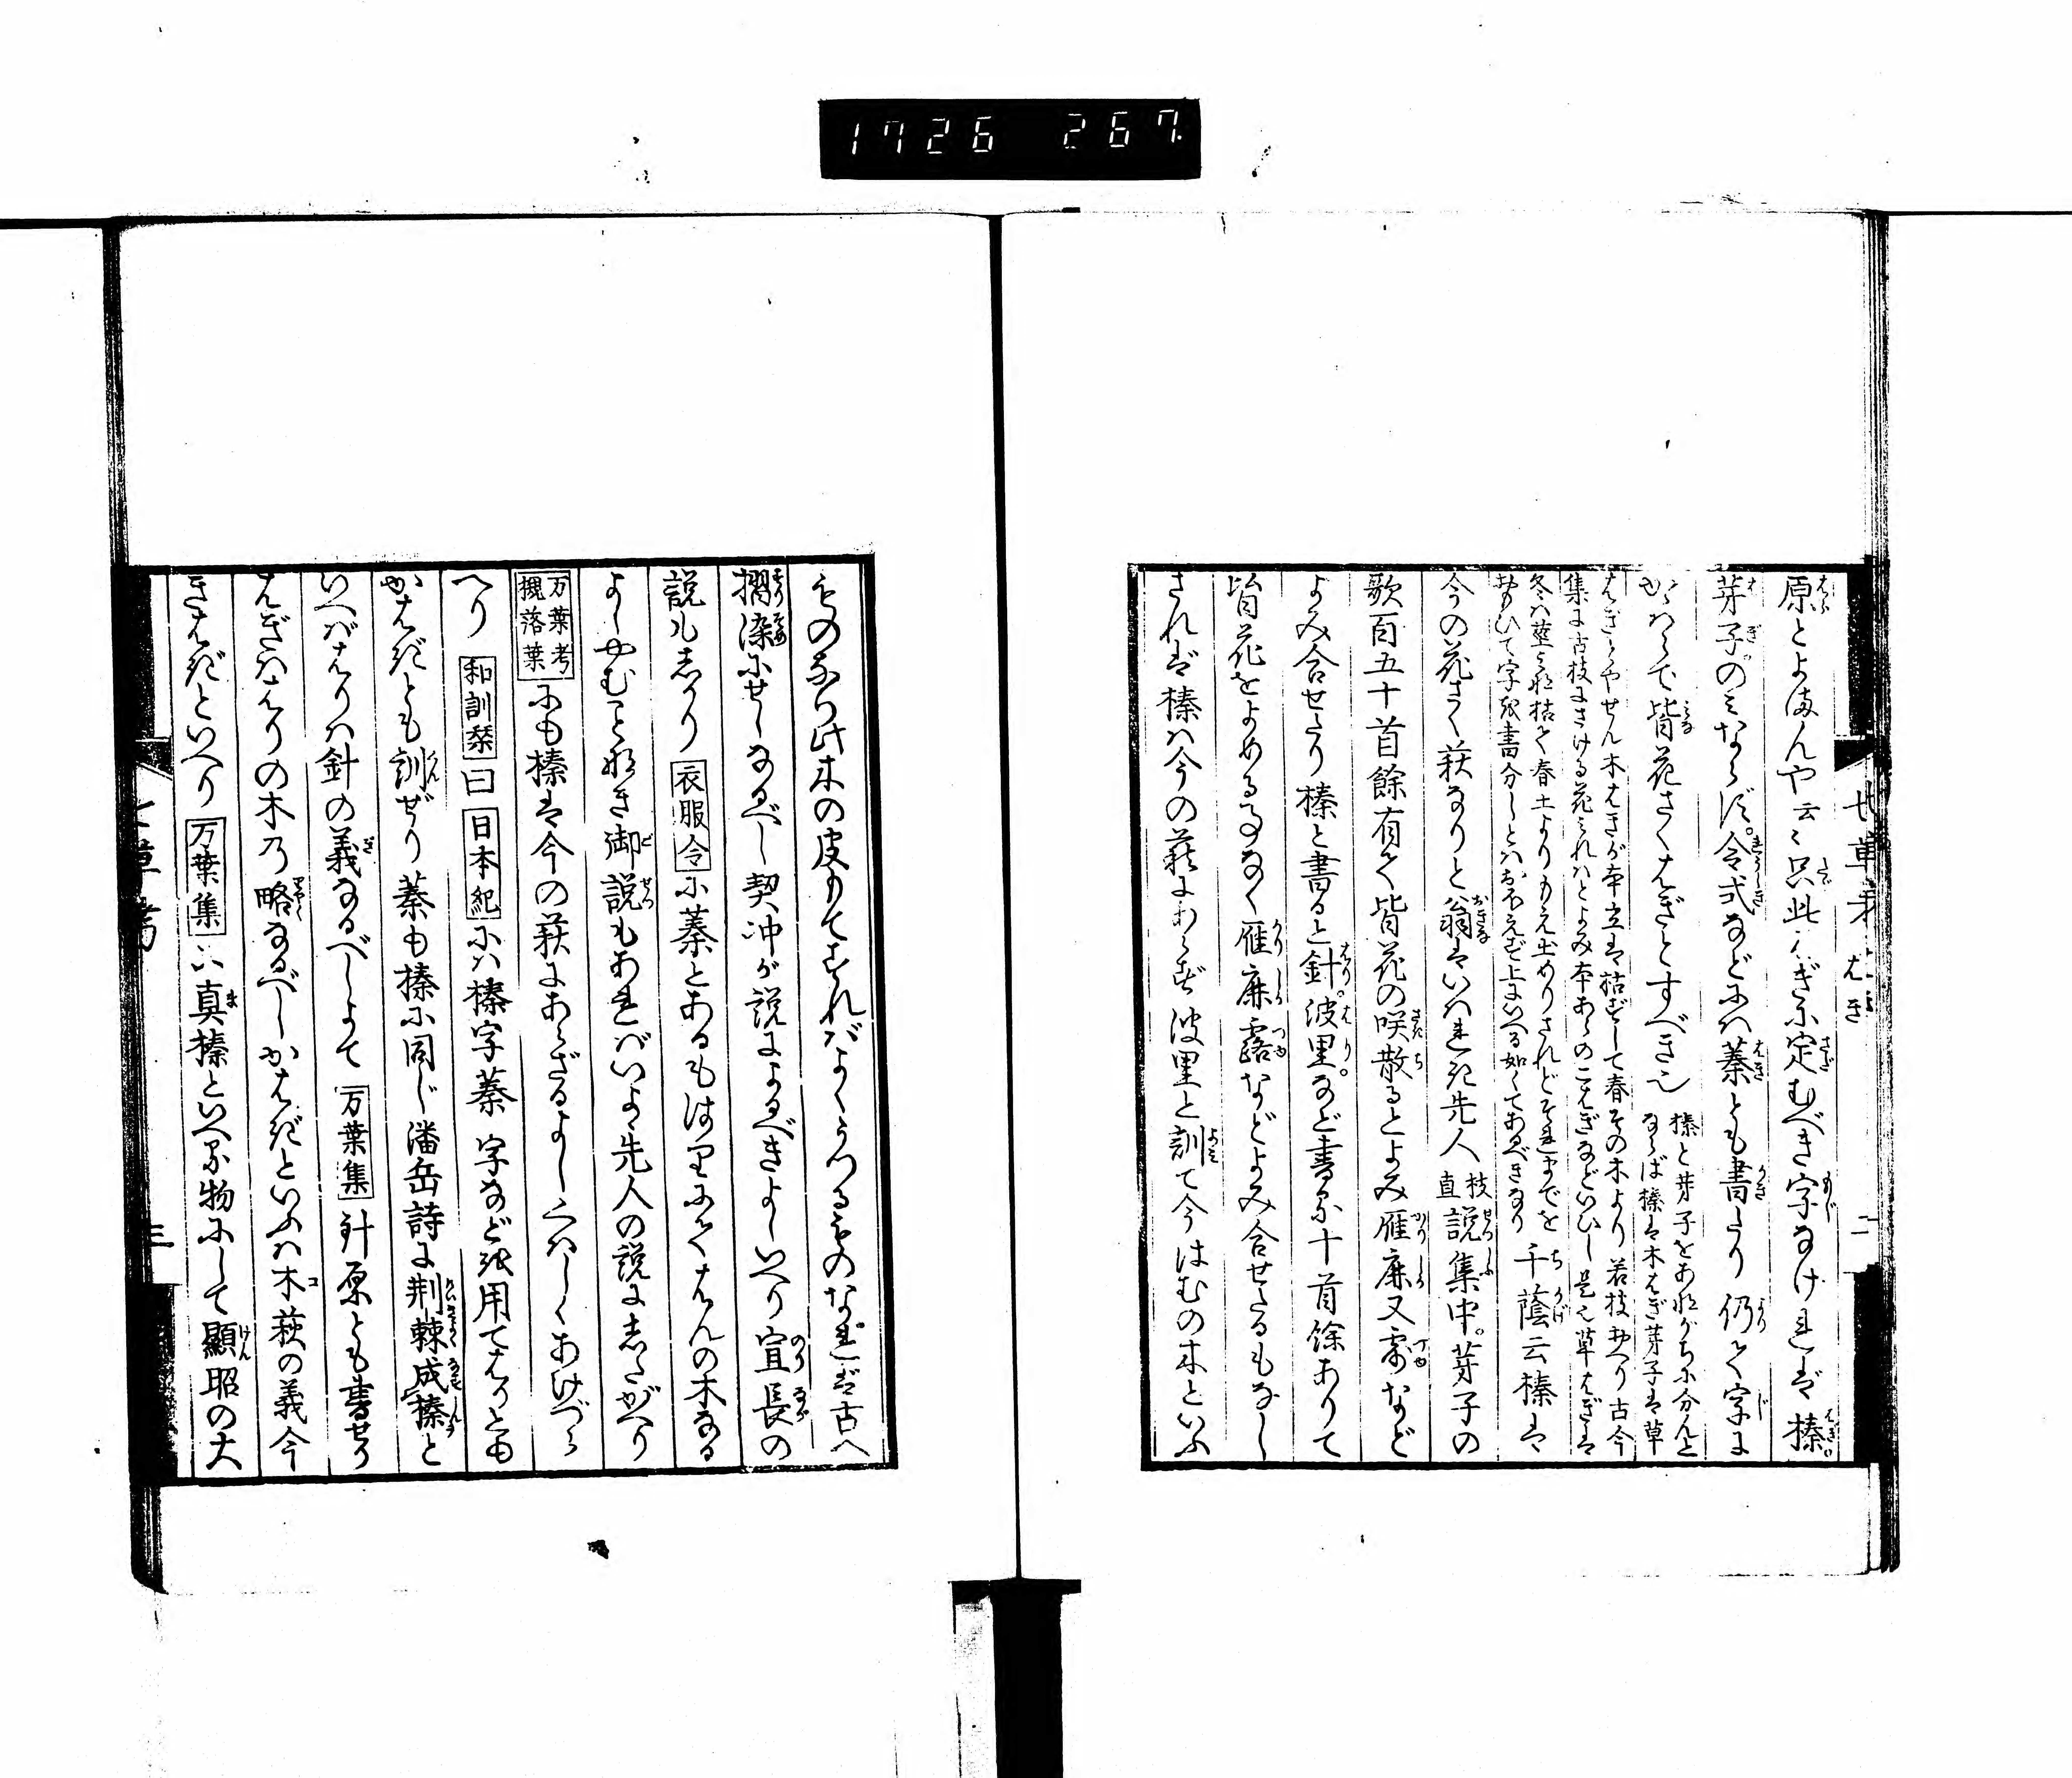 1726 267
原とよまんや云々只此はぎに定むべき字なければ榛
芽子のみならず令式などには蓁とも書たり仍て字に
かゝはらで皆花さくはぎとすべき也
榛と芽子をあながちに分んと
ならば榛は木はぎ芽子は草
はぎとやせん木はぎが本立は枯ずして春その木より若枝出へり古今
集に古枝にさける花みればとよみ本あらのこはぎなどいひし是也草はぎは
冬は茎みな枯て春土よりもえ出めりされどそれまでを
おもひて字を書分しとはおぼえず上にいへる如くてあるべきなり
千蔭云榛は
今の花さく萩なりと翁はいはれき先人
枝
直
説集中芽子の
歌百五十首餘有て皆花の咲散るとよみ雁鹿又露など
よみ合せたり榛と書ると針波里など書るに十首餘ありて
皆花をよめる事なく雁鹿露などよみ合せたるもなし
されば榛は今の萩にあらず波里と訓て今はむの木といふ
七草考 はぎ 二
ものなり此木の皮もてすればよくうつるものなれば古へ
摺染にせしなるべし契沖が説によるべきよしいへり宣長の
説も志かり衣服令に蓁とあるもはりにてはんの木なる
よしやむことなき御説もあればいよゝ先人の説に志たがへり
万葉考
槻落葉
にも榛は今の萩にあらざるよしくはしくあげつら
へり和訓栞曰日本紀には榛字蓁字などを用てはりとも
かはぎとも訓ぜり蓁も榛に同じ潘岳詩に荆棘成榛と
いへばはりは針の義なるべしよて万葉集針原とも書せり
はぎははりの木乃略なるべしかはぎといふは木萩の義今
きはぎといへり万葉集に真榛といへる物にして顯昭の大
七草考 三